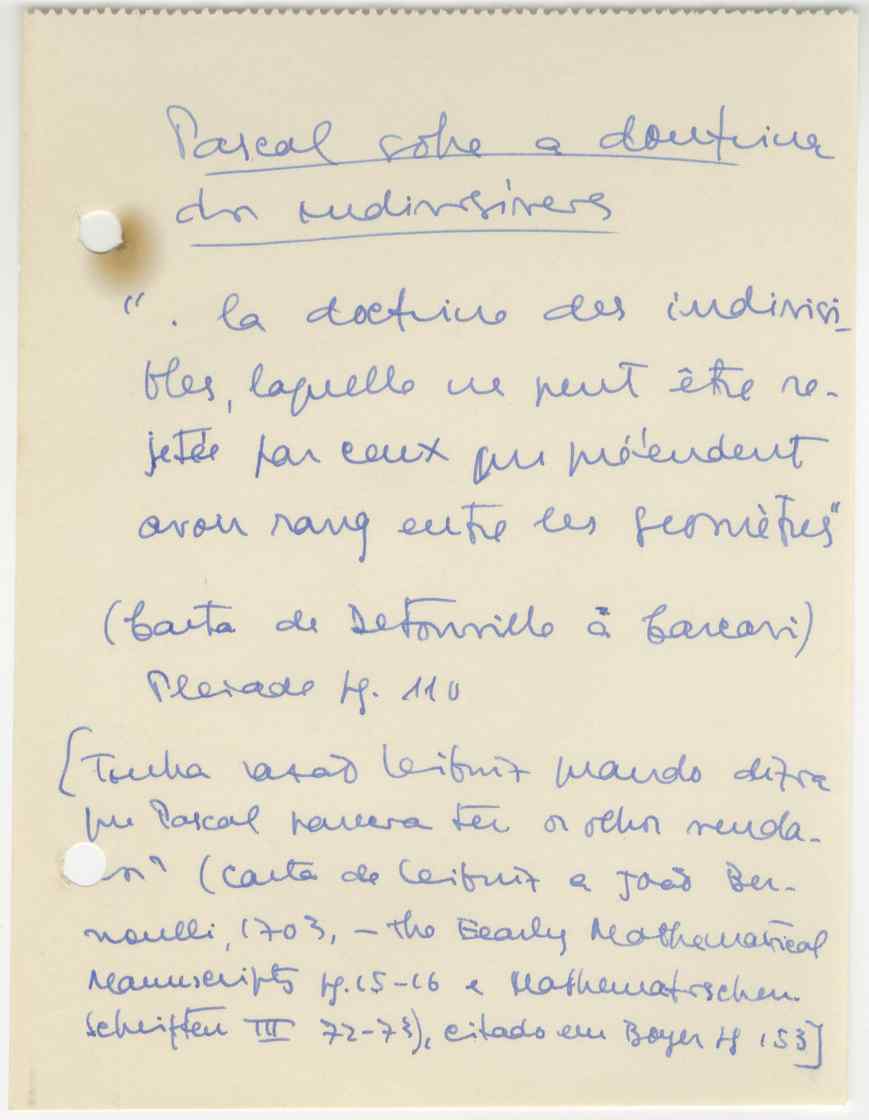 Pascal sobre a doutrina
dos indivisiveis
". la doctrine des indivisi-
bles, laquelle ne peut être re-
jetée par ceux qui prétendent
avoir rang entre les geomètres"
(Carta de Detonville à Carcavi)
Pleiade pg. 110
[Tinha razaõ Leibniz quando dizia
que Pascal parecia ter os olhos venda-
dos? (Carta de Leibniz a Joaõ Ber-
noulli, 1703, - the Early Mathematical
Manuscripts pg. 15-16 e Mathematischen
Schriften III 72-73), citado em Boyer pg 153]